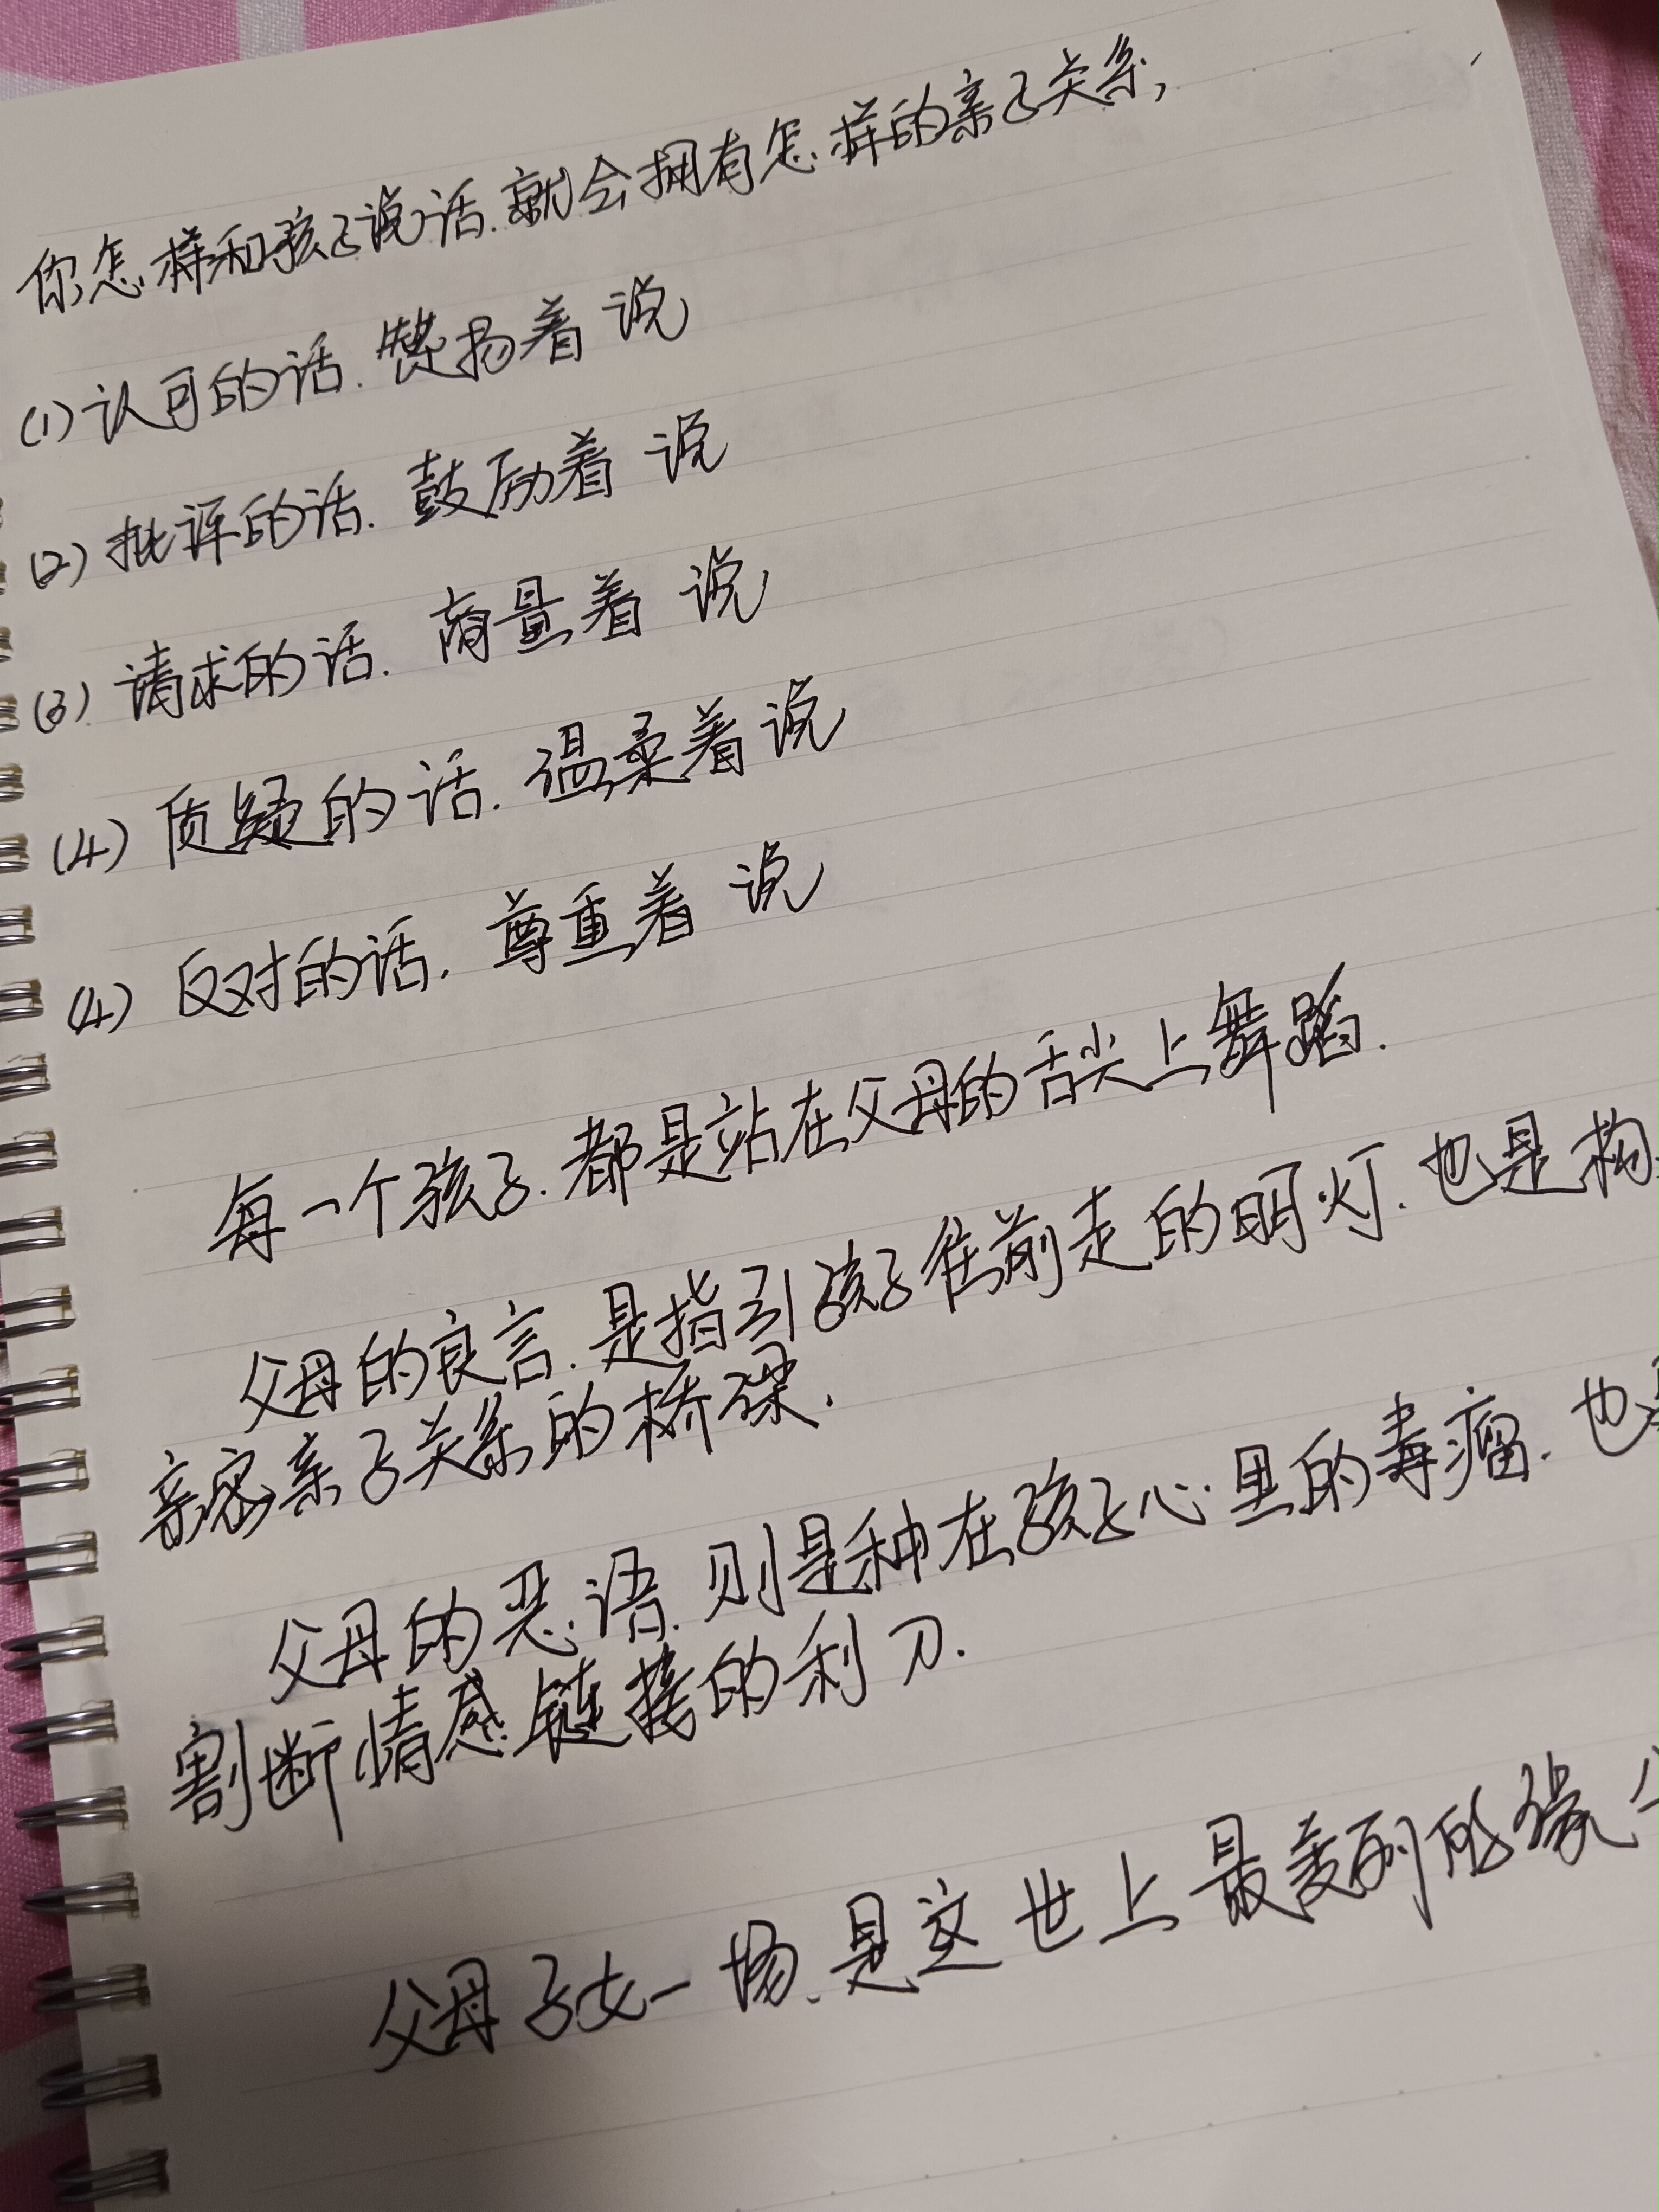 你怎样和孩子说话.就会拥有怎样的亲子关系,
(1)认可的话.赞扬着说
(2)批评的话.鼓励着说
(3)请求的话.商量着说
(4)质疑的话.温柔着说
(4)反对的话.尊重着说
每一个孩子.都是站在父母的舌尖上舞蹈.
父母的良言.是指引孩子往前走的明灯.也是构
亲密亲子关系的桥梁.
父母的恶语.则是种在孩子心里的毒瘤.也是
割断情感链接的利刀.
父母子女一场.是这世上最美丽的缘